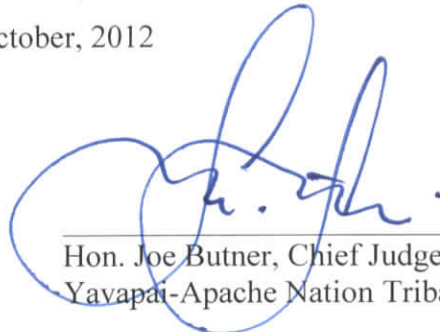 ctober, 2012
Hon. Joe Butner, Chief Judge
Yavapai-Apache Nation Triba